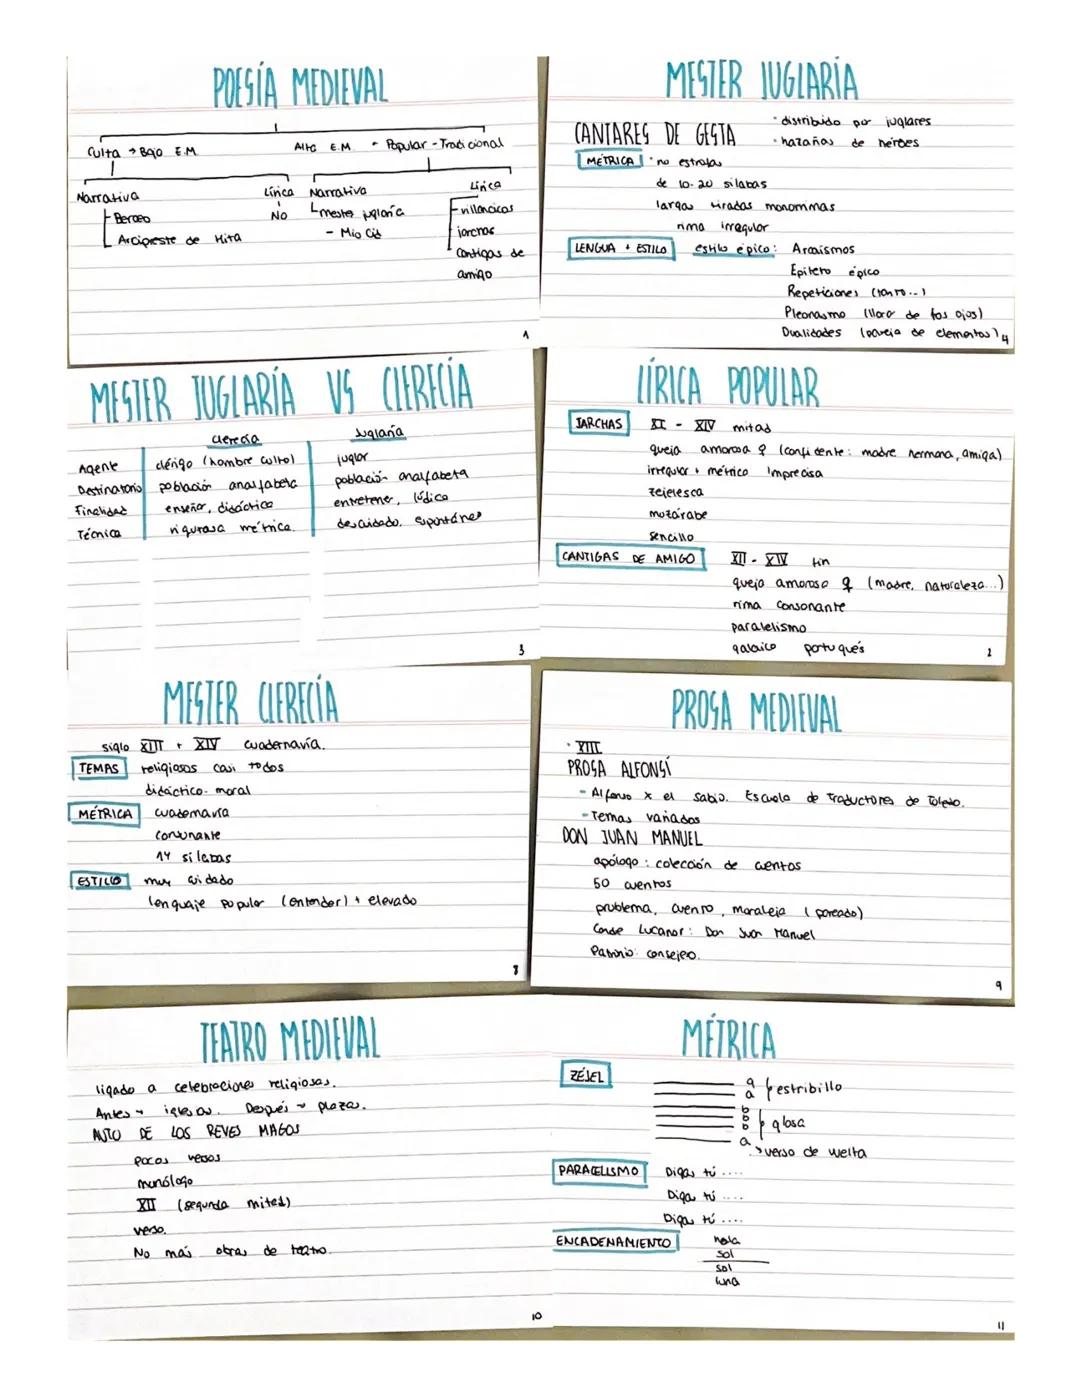 POESÍA MEDIEVAL
Culta → Bajo E.M.
Alta E.M • Popular - Tradicional
Narrativa
Lírica
Narrativa
Lírica
Berceo
NO
mester juglaría
villancicos
Arcipreste de Hita
- Mio Cid
jarchas
Cantigas de
amigo
1
MESTER JUGLARÍA
CANTARES DE GESTA
· distribuido por juglares
· hazañas de héroes
MÉTRICA · no estrofas
de 10-20 sílabas
largas tiradas monorrimas
rima irregular
LENGUA + ESTILO estilo épico: Arcaísmos
Epíteto épico
Repeticiones (tanto...)
Pleonasmo (llorar de los ojos)
Dualidades (pareja de elementos)
4
MESTER JUGLARÍA VS CLERECÍA
clerecía
Juglaría
Agente clérigo (hombre culto) juglar
Destinatario población analfabeta población analfabeta
Finalidad enseñar, didáctica entretener, lúdica
Técnica rigurosa métrica. descuidado, espontáneo
3
LÍRICA POPULAR
JARCHAS XI - XIV mitad
queja amorosa ♀ (confidente: madre hermana, amiga)
irregular + métrica imprecisa
zejelesca
mozárabe
sencillo
CANTIGAS DE AMIGO XII - XIV fin
queja amorosa ♀ (madre, naturaleza...)
rima consonante
paralelismo
galaico portugués
2
MESTER CLERECÍA
siglo XIII + XIV cuadernavía.
TEMAS religiosos casi todos
didáctico-moral
MÉTRICA cuadernavía
consonante
14 sílabas
ESTILO muy cuidado
lenguaje popular (entender) + elevado
8
PROSA MEDIEVAL
· XIII
PROSA ALFONSÍ
- Alfonso X el Sabio. Escuela de Traductores de Toledo.
- Temas variados
DON JUAN MANUEL
apólogo: colección de cuentos
50 cuentos
problema, cuento, moraleja (pareado)
Conde Lucanor: Don Juan Manuel
Patronio: consejero.
9
TEATRO MEDIEVAL
ligado a celebraciones religiosas.
Antes → iglesias. Después → plazas.
AUTO DE LOS REYES MAGOS
pocos versos
monólogo
XII (segunda mitad)
verso.
No más obras de teatro.
10
MÉTRICA
ZÉJEL
a
a
estribillo
b
b
b
glosa
a
verso de vuelta
PARALELISMO Digas tú ....
Digas tú ....
Digas tú ....
ENCADENAMIENTO hola
sol
sol
luna
11